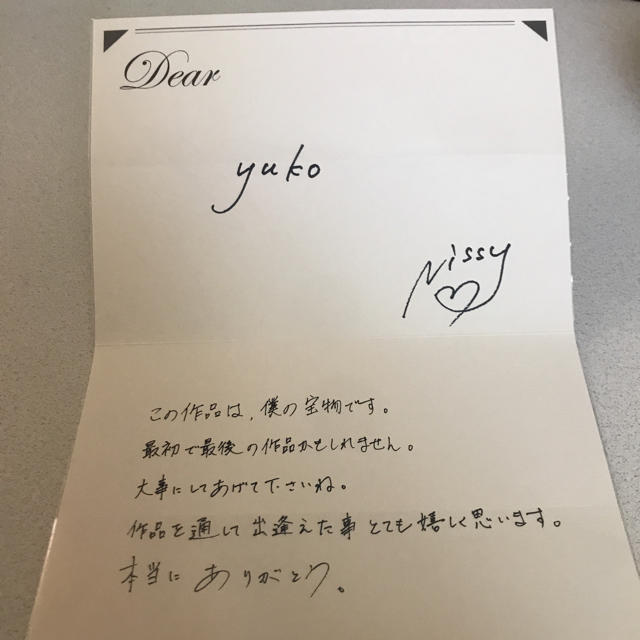 Dear
yuko
Nissy
この作品は、僕の宝物です。
最初で最後の作品かもしれません。
大事にしてあげて下さいね。
作品を通して出逢えた事とても嬉しく思います。
本当にありがとう。